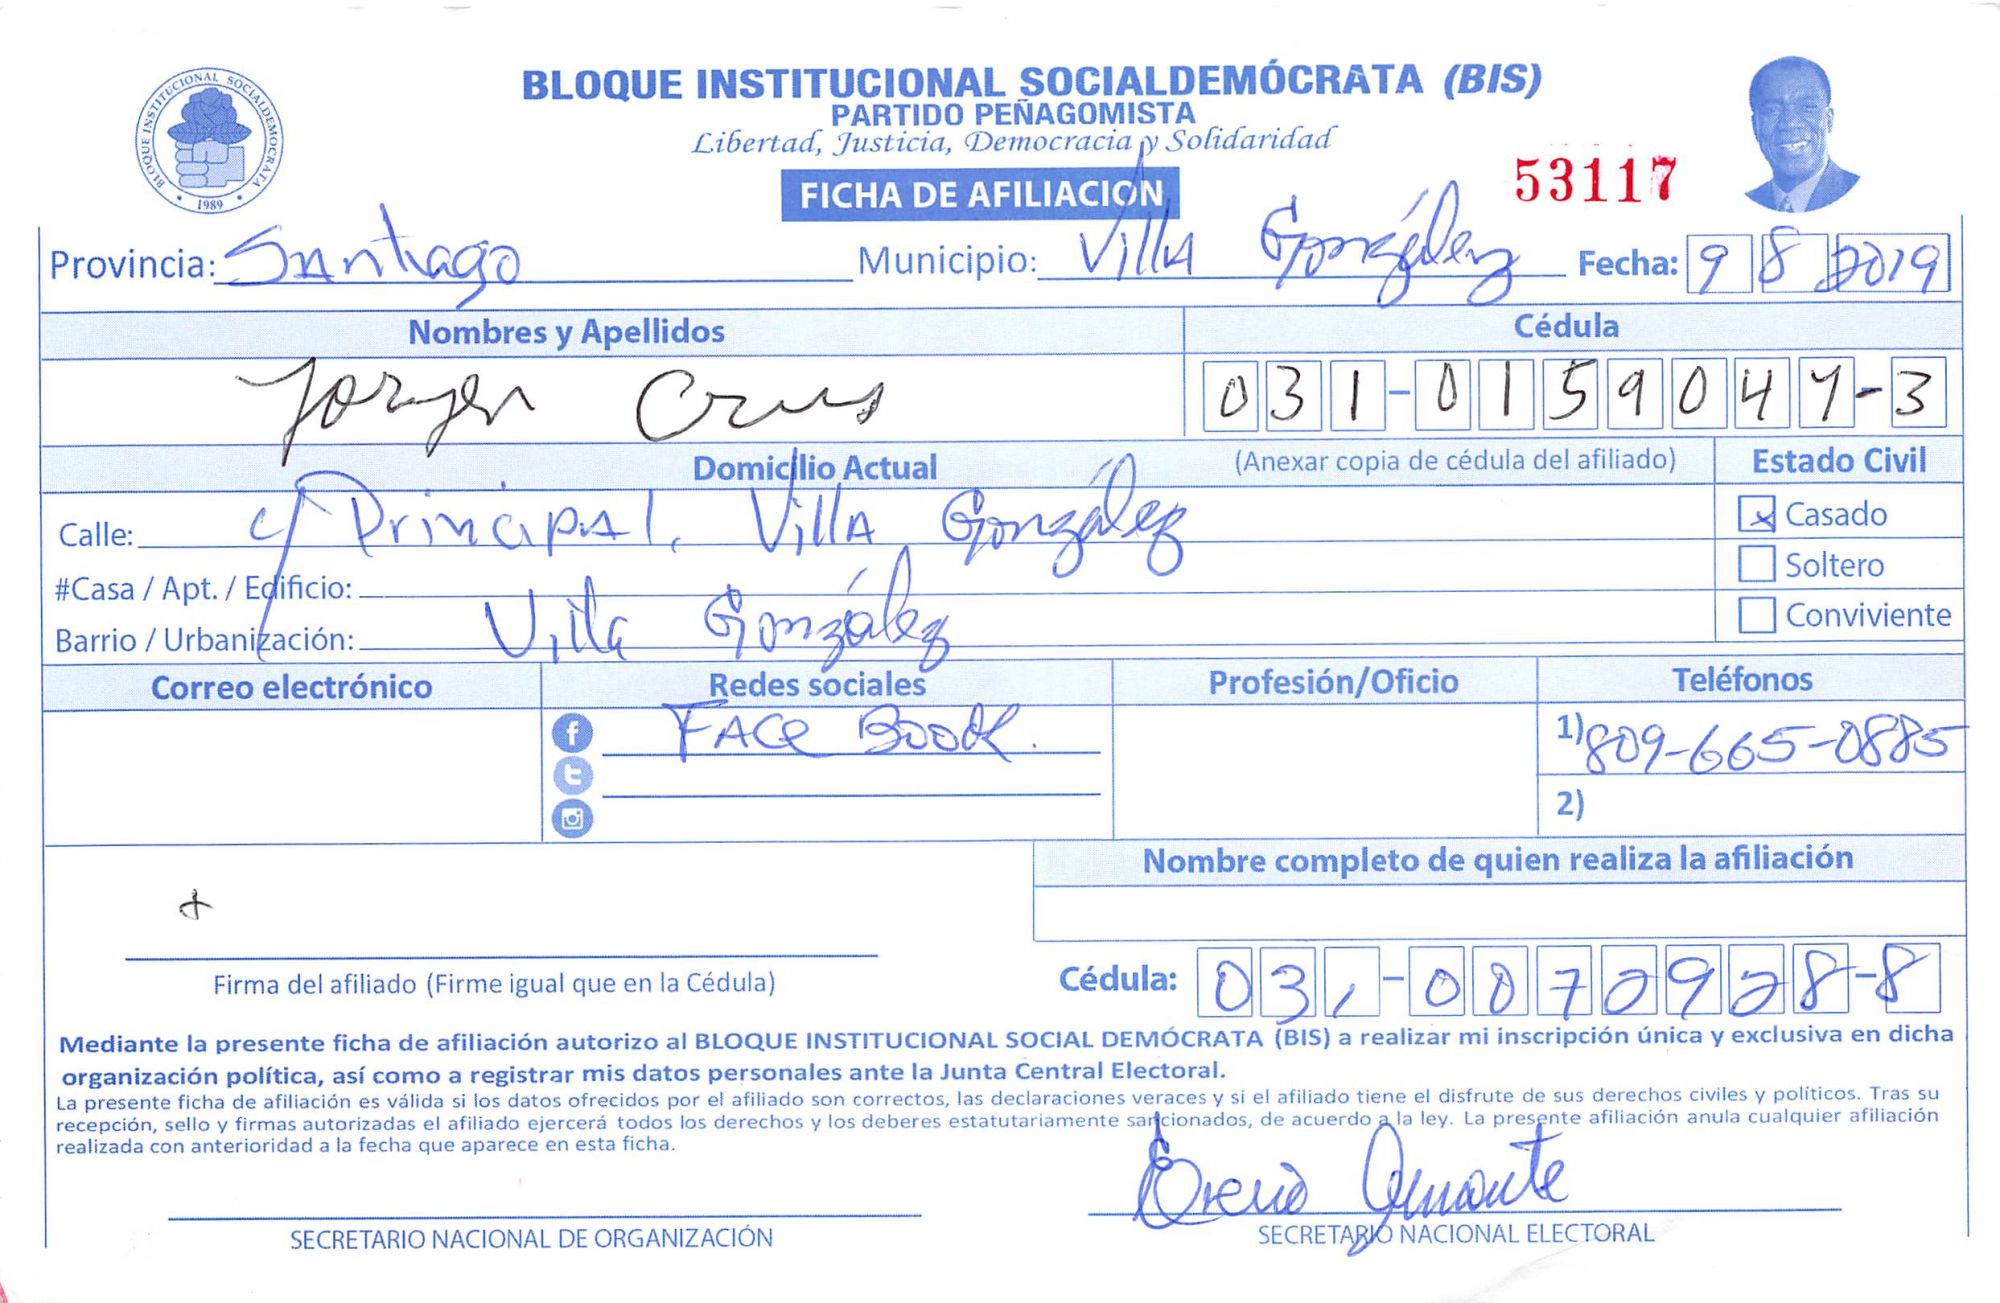 BLOQUE INSTITUCIONAL SOCIALDEMÓCRATA (BIS)
PARTIDO PEÑAGOMISTA
Libertad, Justicia, Democracia y Solidaridad
BLOQUE INSTITUCIONAL SOCIALDEMOCRATA
1989
FICHA DE AFILIACION
53117
Provincia: Santiago Municipio: Villa González Fecha: 9 8 2019
Nombres y Apellidos Cédula
Cruz 031-0159047-3
Domicilio Actual (Anexar copia de cédula del afiliado) Estado Civil
Calle: C/ Principal, Villa González Casado
#Casa / Apt. / Edificio: Soltero
Barrio / Urbanización: Villa González Conviviente
Correo electrónico Redes sociales Profesión/Oficio Teléfonos
FACe Book. 1) 809-665-0885
2)
Nombre completo de quien realiza la afiliación
Firma del afiliado (Firme igual que en la Cédula) Cédula: 031-0072928-8
Mediante la presente ficha de afiliación autorizo al BLOQUE INSTITUCIONAL SOCIAL DEMÓCRATA (BIS) a realizar mi inscripción única y exclusiva en dicha
organización política, así como a registrar mis datos personales ante la Junta Central Electoral.
La presente ficha de afiliación es válida si los datos ofrecidos por el afiliado son correctos, las declaraciones veraces y si el afiliado tiene el disfrute de sus derechos civiles y políticos. Tras su
recepción, sello y firmas autorizadas el afiliado ejercerá todos los derechos y los deberes estatutariamente sancionados, de acuerdo a la ley. La presente afiliación anula cualquier afiliación
realizada con anterioridad a la fecha que aparece en esta ficha.
SECRETARIO NACIONAL DE ORGANIZACIÓN SECRETARIO NACIONAL ELECTORAL